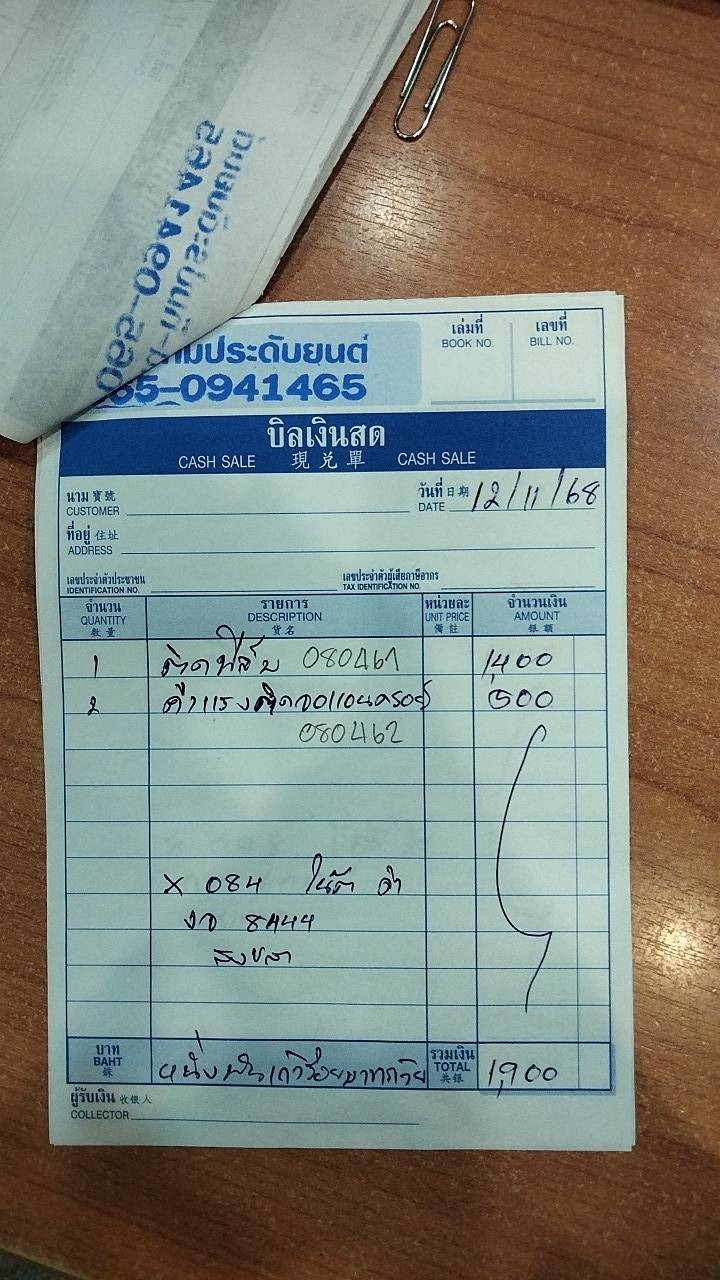 มประดับยนต์
65-0941465
เล่มที่ BOOK NO.
เลขที่ BILL NO.
บิลเงินสด
CASH SALE 現兌單 CASH SALE
นาม 寶號 CUSTOMER
วันที่ 日期 DATE 12/11/68
ที่อยู่ 住址 ADDRESS
เลขประจำตัวประชาชน IDENTIFICATION NO.
เลขประจำตัวผู้เสียภาษีอากร TAX IDENTIFICATION NO.
จำนวน รายการ หน่วยละ จำนวนเงิน
QUANTITY DESCRIPTION UNIT PRICE AMOUNT
數量 貨名 備註 銀額
1 ติดฟิล์ม 080461 1,400
2 ค่าแรงติดจอแอนดรอย์ 500
080462
X 084 ดำ
งจ 8444
สงขลา
บาท BAHT 銖 หนึ่งพันเก้าร้อยบาทถ้วน รวมเงิน TOTAL 共銀 1,900
ผู้รับเงิน 收銀人
COLLECTOR